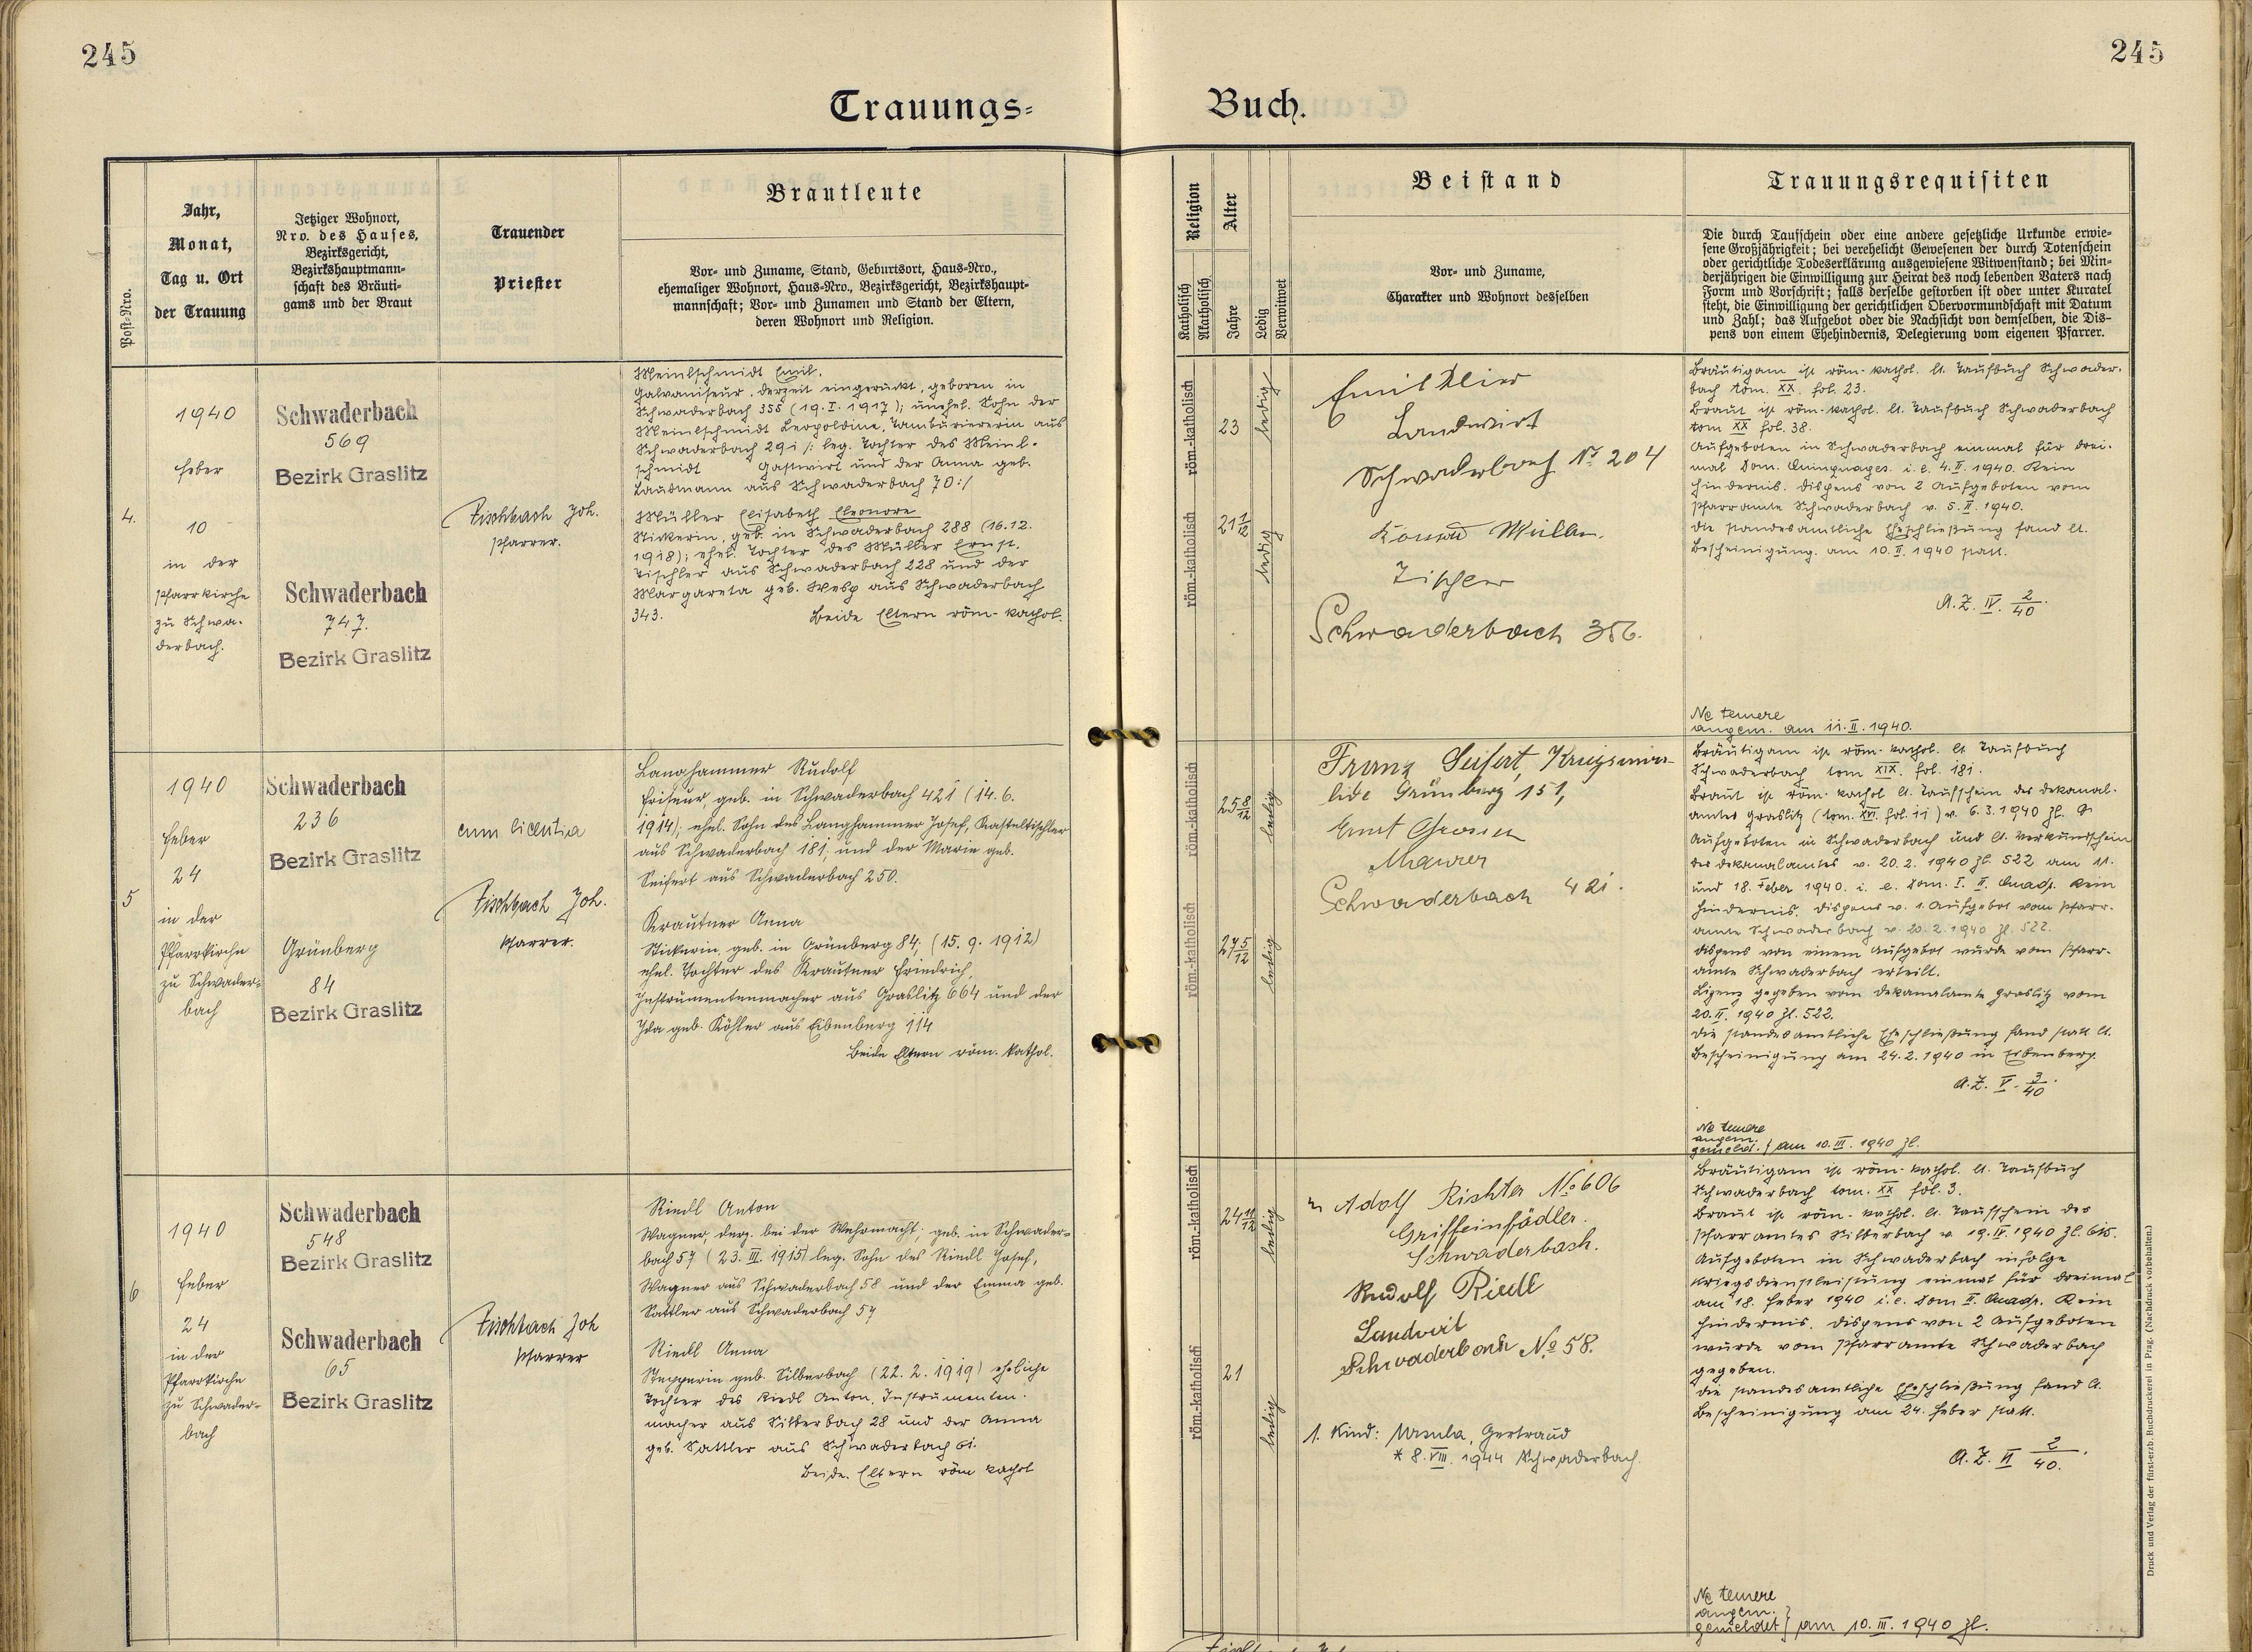 245
245
Trauungs-
Buch.
Post-Nro.
Jahr,
Monat,
Tag u. Ort
der Trauung
Jetziger Wohnort,
Nro. des Hauses,
Bezirksgericht,
Bezirkshauptmann-
schaft des Bräuti-
gams und der Braut
Trauender
Priester
Brautleute
Vor- und Zuname, Stand, Geburtsort, Haus-Nro.,
ehemaliger Wohnort, Haus-Nro., Bezirksgericht, Bezirkshaupt-
mannschaft; Vor- und Zunamen und Stand der Eltern,
deren Wohnort und Religion.
Religion
Katholisch
Akatholisch
Alter
Jahre
Ledig
Verwitwet
Beistand
Vor- und Zuname,
Charakter und Wohnort desselben
Trauungsrequisiten
Die durch Taufschein oder eine andere gesetzliche Urkunde erwie-
sene Großjährigkeit; bei verehelicht Gewesenen der durch Totenschein
oder gerichtliche Todeserklärung ausgewiesene Witwenstand; bei Min-
derjährigen die Einwilligung zur Heirat des noch lebenden Vaters nach
Form und Vorschrift; falls derselbe gestorben ist oder unter Kuratel
steht, die Einwilligung der gerichtlichen Obervormundschaft mit Datum
und Zahl; das Aufgebot oder die Nachsicht von demselben, die Dis-
pens von einem Ehehindernis, Delegierung vom eigenen Pfarrer.
4.
1940
Feber
10
in der
Pfarrkirche
zu Schwa-
derbach.
Schwaderbach
569
Bezirk Graslitz
Schwaderbach
747.
Bezirk Graslitz
Fischbach Joh.
Pfarrer.
Meinlschmidt Emil.
Galvaniseur, derzeit eingerückt, geboren in
Schwaderbach 355 (19. I. 1917); unehel. Sohn der
Meinlschmidt Leopoldine, Tambouriererin aus
Schwaderbach 291 /: leg. Tochter des Meinl-
schmidt Gastwirt und der Anna geb.
Laubmann aus Schwaderbach 70:/
Müller Elisabeth Eleonore
Stickerin, geb. in Schwaderbach 288 (16.12.
1918); ehel. Tochter des Müller Ernst,
Tischler aus Schwaderbach 228 und der
Margareta geb. Wesp aus Schwaderbach
343. Beide Eltern röm-kathol.
röm.-katholisch
23
ledig
röm.-katholisch
21 1/12
ledig
Emil Klier
Landwirt
Schwaderbach Nr. 204
Konrad Müller.
Tischler
Schwaderbach 356.
Bräutigam ist röm-kathol. lt. Taufbuch Schwader-
bach tom. XX. fol. 23.
Braut ist röm-kathol. lt. Taufbuch Schwaderbach
tom XX fol. 38.
Aufgeboten in Schwaderbach einmal für drei-
mal Dom. Quinquages. i. e. 4. II. 1940. Kein
Hindernis. Dispens von 2 Aufgeboten vom
Pfarramte Schwaderbach v. 5. II. 1940.
Die standesamtliche Eheschließung fand lt.
Bescheinigung am 10. II. 1940 statt.
A. Z. IV. 2/40.
Ne temere
angem. am 11. II. 1940.
5
1940
Feber
24
in der
Pfarrkirche
zu Schwader-
bach
Schwaderbach
236
Bezirk Graslitz
Grünberg
84
Bezirk Graslitz
cum licentia
Fischbach Joh.
Pfarrer.
Langhammer Rudolf
Friseur, geb. in Schwaderbach 421 (14. 6.
1914); ehel. Sohn des Langhammer Josef, Kasteltischler
aus Schwaderbach 181, und der Marie geb.
Seifert aus Schwaderbach 250.
Krautner Anna
Stickerin, geb. in Grünberg 84, (15. 9. 1912)
ehel. Tochter des Krautner Friedrich,
Instrumentenmacher aus Graslitz 664 und der
Ida geb. Köhler aus Eibenberg 114
Beide Eltern röm. kathol.
röm.-katholisch
25 8/12
ledig
röm.-katholisch
27 5/12
ledig
Franz Seifert, Kriegsinva-
lide Grünberg 151,
Ernst
Maurer
Schwaderbach 421.
Bräutigam ist röm-kathol. lt. Taufbuch
Schwaderbach tom XIX. fol. 181.
Braut ist röm-kathol lt. Taufschein des Dekanal-
amtes Graslitz (tom. XVI. fol. 11) v. 6. 3. 1940 Zl. 9
Aufgeboten in Schwaderbach und lt. Verkündschein
des Dekanalamtes v. 20. 2. 1940 Zl. 522 am 11.
und 18. Feber 1940. i. e. Dom. I. II. Quadr. Kein
Hindernis. Dispens v. 1. Aufgebot vom Pfarr-
amte Schwaderbach v. 20. 2. 1940 Zl. 522.
Dispens von einem Aufgebot wurde vom Pfarr-
amte Schwaderbach erteilt.
Lizenz gegeben vom Dekanalamte Graslitz vom
20. II. 1940 Zl. 522.
Die standesamtliche Eheschließung fand statt lt.
Bescheinigung am 24. 2. 1940 in Eibenberg.
A. Z. V. 3/40.
Ne temere
angem.
gemeld. } am 10. III. 1940 Zl.
6
1940
Feber
24
in der
Pfarrkirche
zu Schwader-
bach
Schwaderbach
548
Bezirk Graslitz
Schwaderbach
65
Bezirk Graslitz
Fischbach Joh
Pfarrer
Riedl Anton
Wagner, derz. bei der Wehrmacht, geb. in Schwader-
bach 57 (23. III. 1915) leg. Sohn des Riedl Josef,
Wagner aus Schwaderbach 58 und der Emma geb.
Sattler aus Schwaderbach 57
Riedl Anna
Stepperin geb. Silberbach (22. 2. 1919) eheliche
Tochter des Riedl Anton, Instrumenten-
macher aus Silberbach 28 und der Anna
geb. Sattler aus Schwaderbach 61.
Beide Eltern röm kathol
röm.-katholisch
24 11/12
ledig
röm.-katholisch
21
ledig
Adolf Richter No 606
Griffeinfädler.
Schwaderbach.
Rudolf Riedl
Landwirt
Schwaderbach No 58.
1. Kind: Ursula, Gertraud
* 8. VIII. 1944 Schwaderbach.
Bräutigam ist röm-kathol. lt. Taufbuch
Schwaderbach tom. XX fol. 3.
Braut ist röm-kathol. lt. Taufschein des
Pfarramtes Silberbach v. 19. II. 1940 Zl. 615.
Aufgeboten in Schwaderbach infolge
Kriegsdienstleistung einmal für dreimal
am 18. Feber 1940 i. e. Dom II. Quadr. Kein
Hindernis. Dispens von 2 Aufgeboten
wurde vom Pfarramte Schwaderbach
gegeben.
Die standesamtliche Eheschließung fand lt.
Bescheinigung am 24. Feber statt.
A. Z. VI 2/40.
Ne temere
angem.
gemeldet } am 10. III. 1940 Zl.
Druck und Verlag der fürst-erzb. Buchdruckerei in Prag. (Nachdruck vorbehalten.)